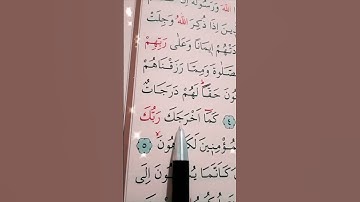 اللهَ وَرَسُولَهُ
ينَ اِذَا ذُكِرَ اللهُ وَجِلَتْ
دَتْهُمْ اِيمَانًا وَعَلٰى رَبِّهِمْ
الصَّلٰوةَ وَمِمَّا رَزَقْنَاهُمْ
ونَ حَقًّا لَهُمْ دَرَجَاتٌ
﴿٤﴾ كَمَا اَخْرَجَكَ رَبُّكَ
مُؤْمِنِينَ لَكَارِهُونَ ﴿٥﴾
كَاَنَّمَا يُسَاقُونَ اِلَى